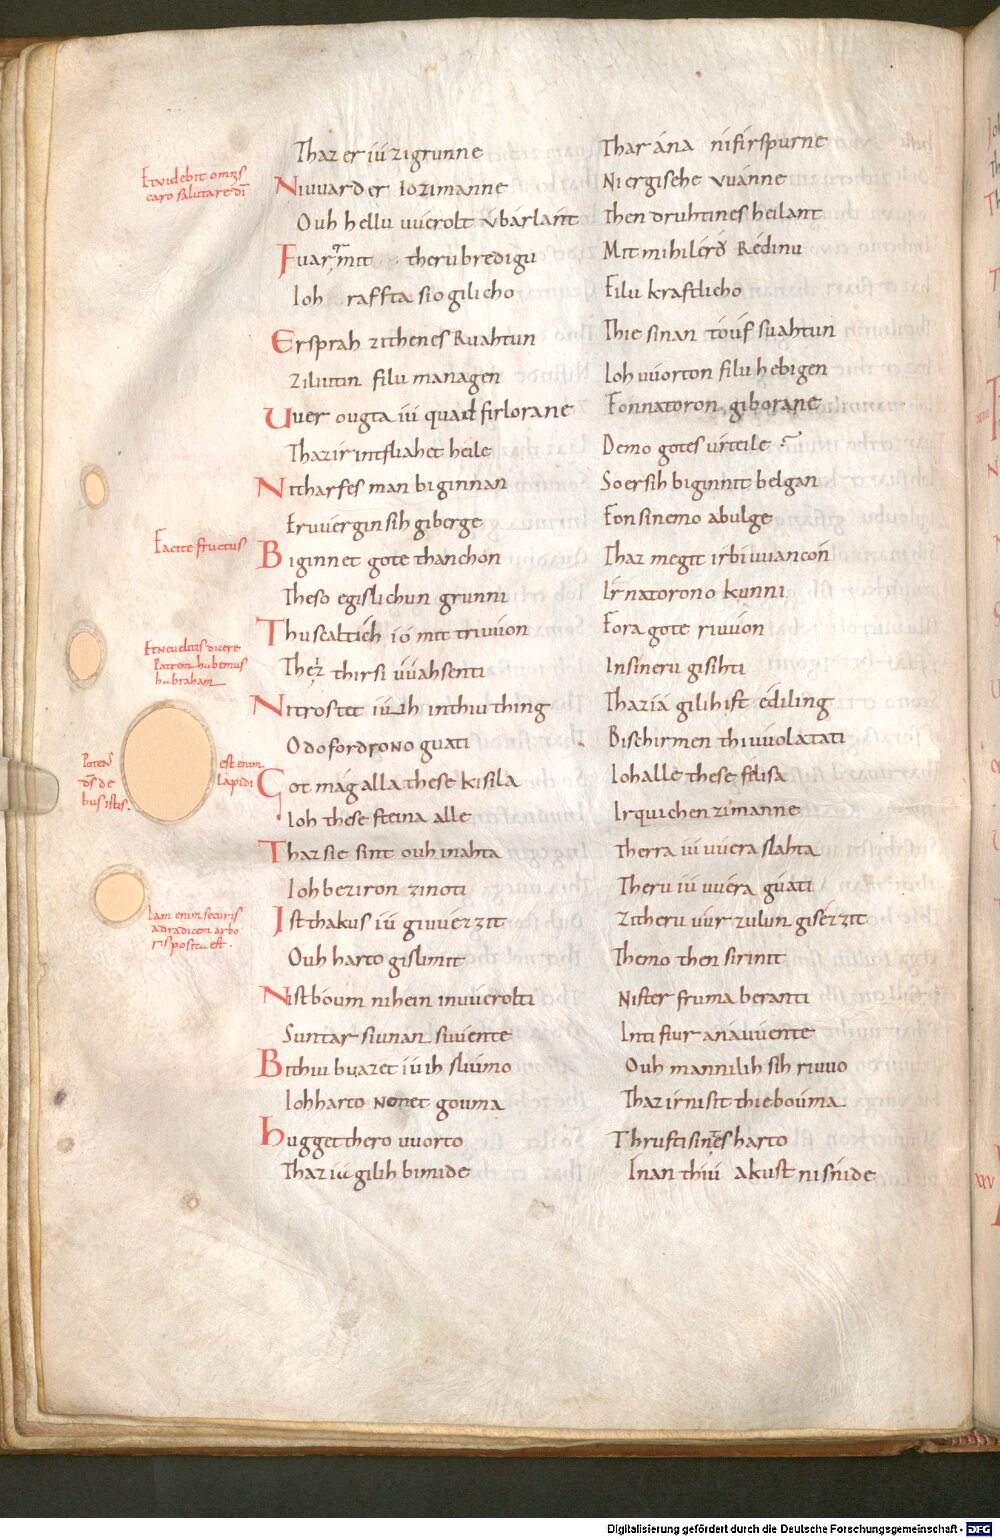 Thaz er iu zigrunne Thar ána nifirspurne
Et videbit omnis
caro salutare dī
Niuuard er io zimanne Ni ergisehe vuánne
Ouh hellu uuérolt v́barlánt then druhtines heilant
Fuar mit theru bredigu Mit mihileru Rédinu
Ioh raffta sio gilicho Filu kraftlicho
Ersprah zithenes Ruahtun Thie sinan touf suahtun
Ziliutin filu managen Ioh uuorton filu hebigen
Uuer ougta iu quad firlorane Fonnatoron giborane
Thaz ir intfliahet heile Demo gotes úrteile
Nitharf es man biginnan So er sih biginnit belgan
Er uuergin sih giberge Fon sinemo abulge
Facite fructus
Biginnet gote thanchon Thaz megit irbiuuancon
Theso egislichun grunni Ir natorono kunni
Thu scalt ich ió mit triuuon Fora gote riuuon
Et ne velitis dicere
Patrem habemus
habraham
Thez thirsi uúahsenti In sineru gisihti
Nitrostet iu ih in thiu thing Thaz iá gilih ist édiling
Odo fordrono guati Bischirmen thiuuolatati
Potens est enim
ds̄ de lapidi
bus istis.
Got mág alla these kisila Ioh alle these felisa
Ioh these steina alle Irquichen zimanne
Thaz sie sint ouh inahta Therra iu uuera slahta
Ioh beziron zinoti Theru iu uuéra guati
Ist thakus iu giuuézzit Zitheru vúrzulun gisézzit
Iam enim securis
ad radicem arbo
ris posita est.
Ouh harto gislimit Themo then sirinit
Nist bóum nihein inuuérolti Nist er fruma beranti
Suntar siunan siuuente Inti fiur anauuente
Bithiu buazet iu ih sliumo Ouh mannilih sih riuuo
Ioh harto nemet gouma Thaz ir nisit thie bouma
hugget thero uuorto Thruftisines harto
Thaz iu gilih bimide Inan thiu akust ni snide
Digitalisierung gefördert durch die Deutsche Forschungsgemeinschaft - DFG